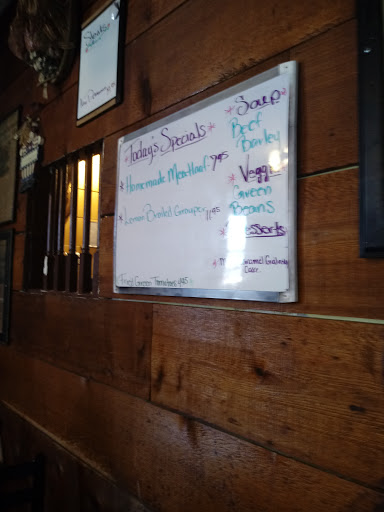 *Today's Specials*
*Homemade Meatloaf 7.95
*Lemon Broiled Grouper 11.95
Fried Green Tomatoes 4.95
*Soup*
Beef
Barley
*Veggi
Green
Beans
Desserts